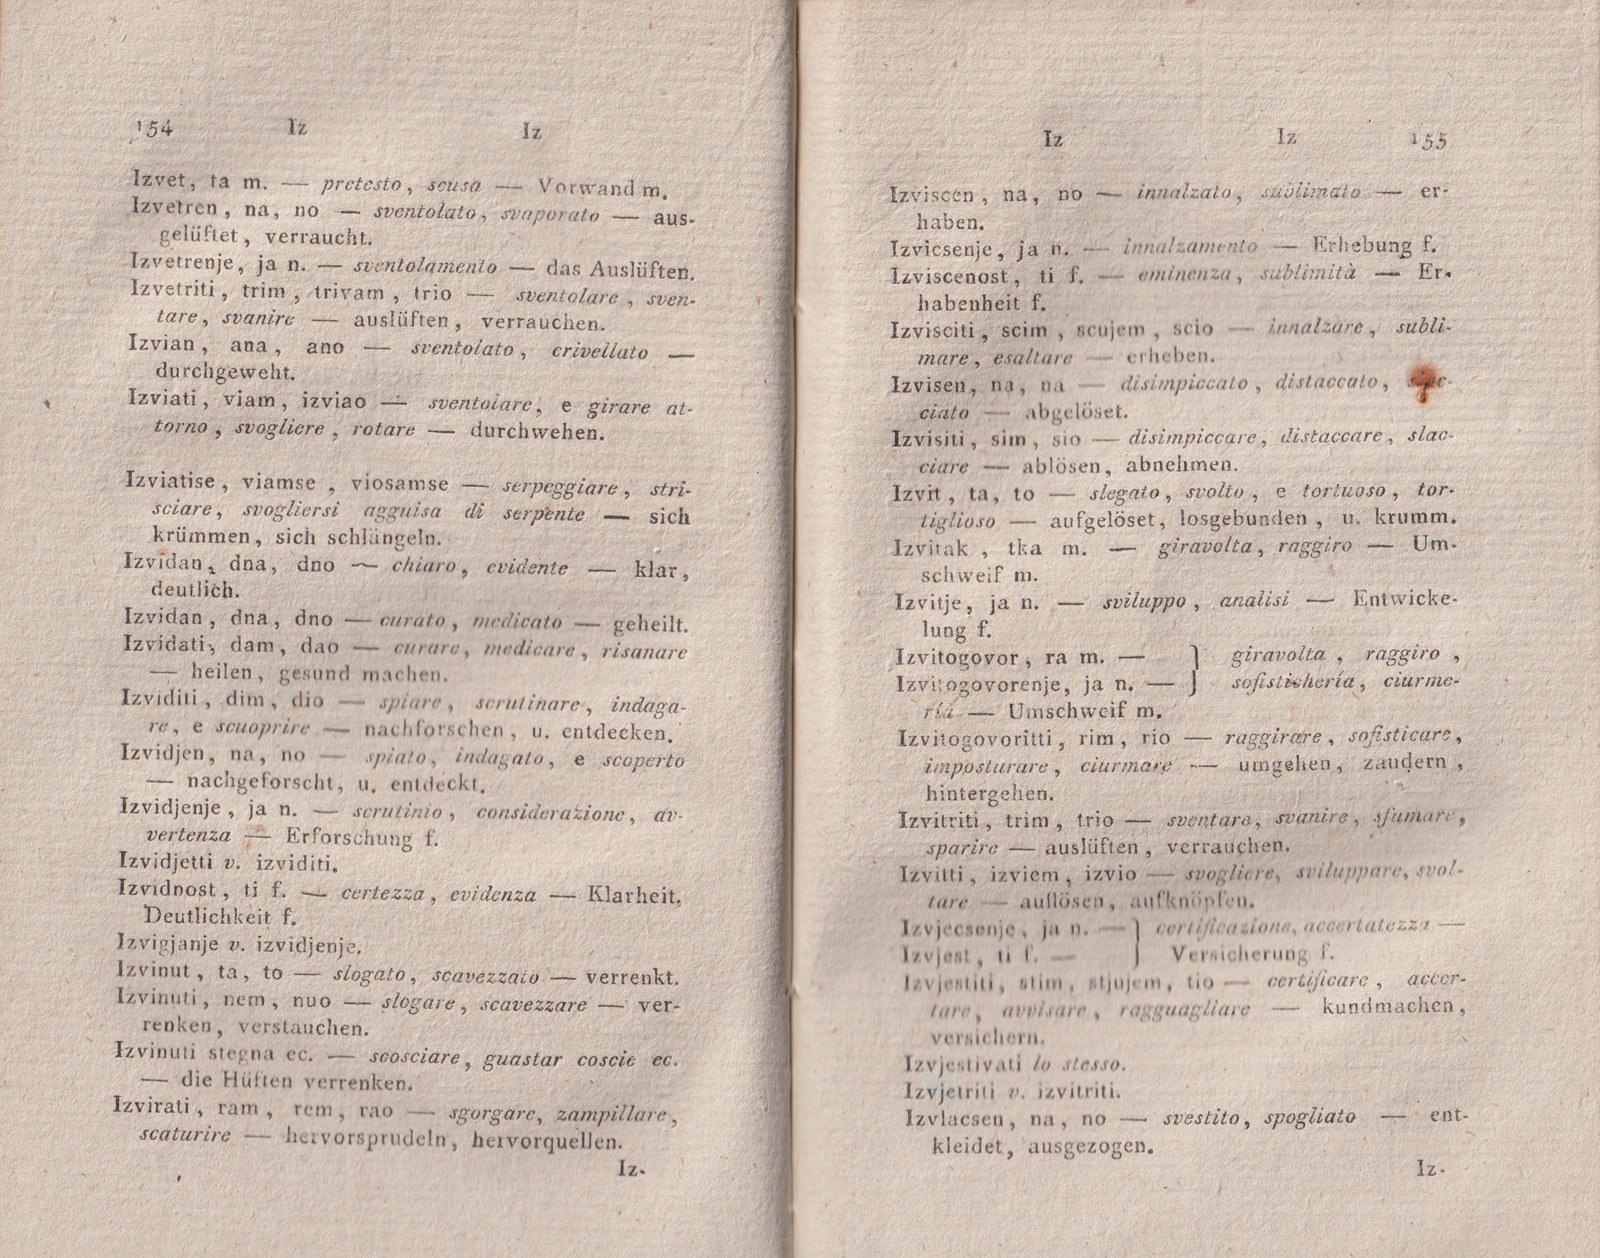 154 Iz Iz
Izvet, ta m. — pretesto, scusa — Vorwand m.
Izvetren, na, no — sventolato, svaporato — aus-
gelüftet, verraucht.
Izvetrenje, ja n. — sventolamento — das Auslüften.
Izvetriti, trim, trivam, trio — sventolare, sven-
tare, svanire — auslüften, verrauchen.
Izvian, ana, ano — sventolato, crivellato —
durchgeweht.
Izviati, viam, izviao — sventolare, e girare at-
torno, svogliere, rotare — durchwehen.
Izviatise, viamse, viosamse — serpeggiare, stri-
sciare, svogliersi agguisa di serpente — sich
krümmen, sich schlängeln.
Izvidan, dna, dno — chiaro, evidente — klar,
deutlich.
Izvidan, dna, dno — curato, medicato — geheilt.
Izvidati, dam, dao — curare, medicare, risanare
— heilen, gesund machen.
Izviditi, dim, dio — spiare, scrutinare, indaga-
re, e scuoprire — nachforschen, u. entdecken.
Izvidjen, na, no — spiato, indagato, e scoperto
— nachgeforscht, u. entdeckt.
Izvidjenje, ja n. — scrutinio, considerazione, av-
vertenza — Erforschung f.
Izvidjetti v. izviditi.
Izvidnost, ti f. — certezza, evidenza — Klarheit,
Deutlichkeit f.
Izvigjanje v. izvidjenje.
Izvinut, ta, to — slogato, scavezzato — verrenkt.
Izvinuti, nem, nuo — slogare, scavezzare — ver-
renken, verstauchen.
Izvinuti stegna ec. — scosciare, guastar coscie ec.
— die Hüften verrenken.
Izvirati, ram, rem, rao — sgorgare, zampillare,
scaturire — hervorsprudeln, hervorquellen.
Iz-
Iz Iz 155
Izviscen, na, no — innalzato, sublimato — er-
haben.
Izvicsenje, ja n. — innalzamento — Erhebung f.
Izviscenost, ti f. — eminenza, sublimità — Er-
habenheit f.
Izvisciti, scim, scujem, scio — innalzare, subli-
mare, esaltare — erheben.
Izvisen, na, na — disimpiccato, distaccato, slac-
ciato — abgelöset.
Izvisiti, sim, sio — disimpiccare, distaccare, slac-
ciare — ablösen, abnehmen.
Izvit, ta, to — slegato, svolto, e tortuoso, tor-
tiglioso — aufgelöset, losgebunden, u. krumm.
Izvitak, tka m. — giravolta, raggiro — Um-
schweif m.
Izvitje, ja n. — sviluppo, analisi — Entwicke-
lung f.
Izvitogovor, ra m. — } giravolta, raggiro,
Izvitogovorenje, ja n. — } sofisticheria, ciurme-
ría — Umschweif m.
Izvitogovoritti, rim, rio — raggirare, sofisticare,
imposturare, ciurmare — umgehen, zaudern,
hintergehen.
Izvitriti, trim, trio — sventare, svanire, sfumare,
sparire — auslüften, verrauchen.
Izvitti, izviem, izvio — svogliere, sviluppare, svol-
tare — auflösen, aufknöpfen.
Izvjecsenje, ja n. — } certificazione, accertatezza —
Izvjest, ti f. — } Versicherung f.
Izvjestiti, stim, stjujem, tio — certificare, accer-
tare, avvisare, ragguagliare — kundmachen,
versichern.
Izvjestivati lo stesso.
Izvjetriti v. izvitriti.
Izvlacsen, na, no — svestito, spogliato — ent-
kleidet, ausgezogen.
Iz-